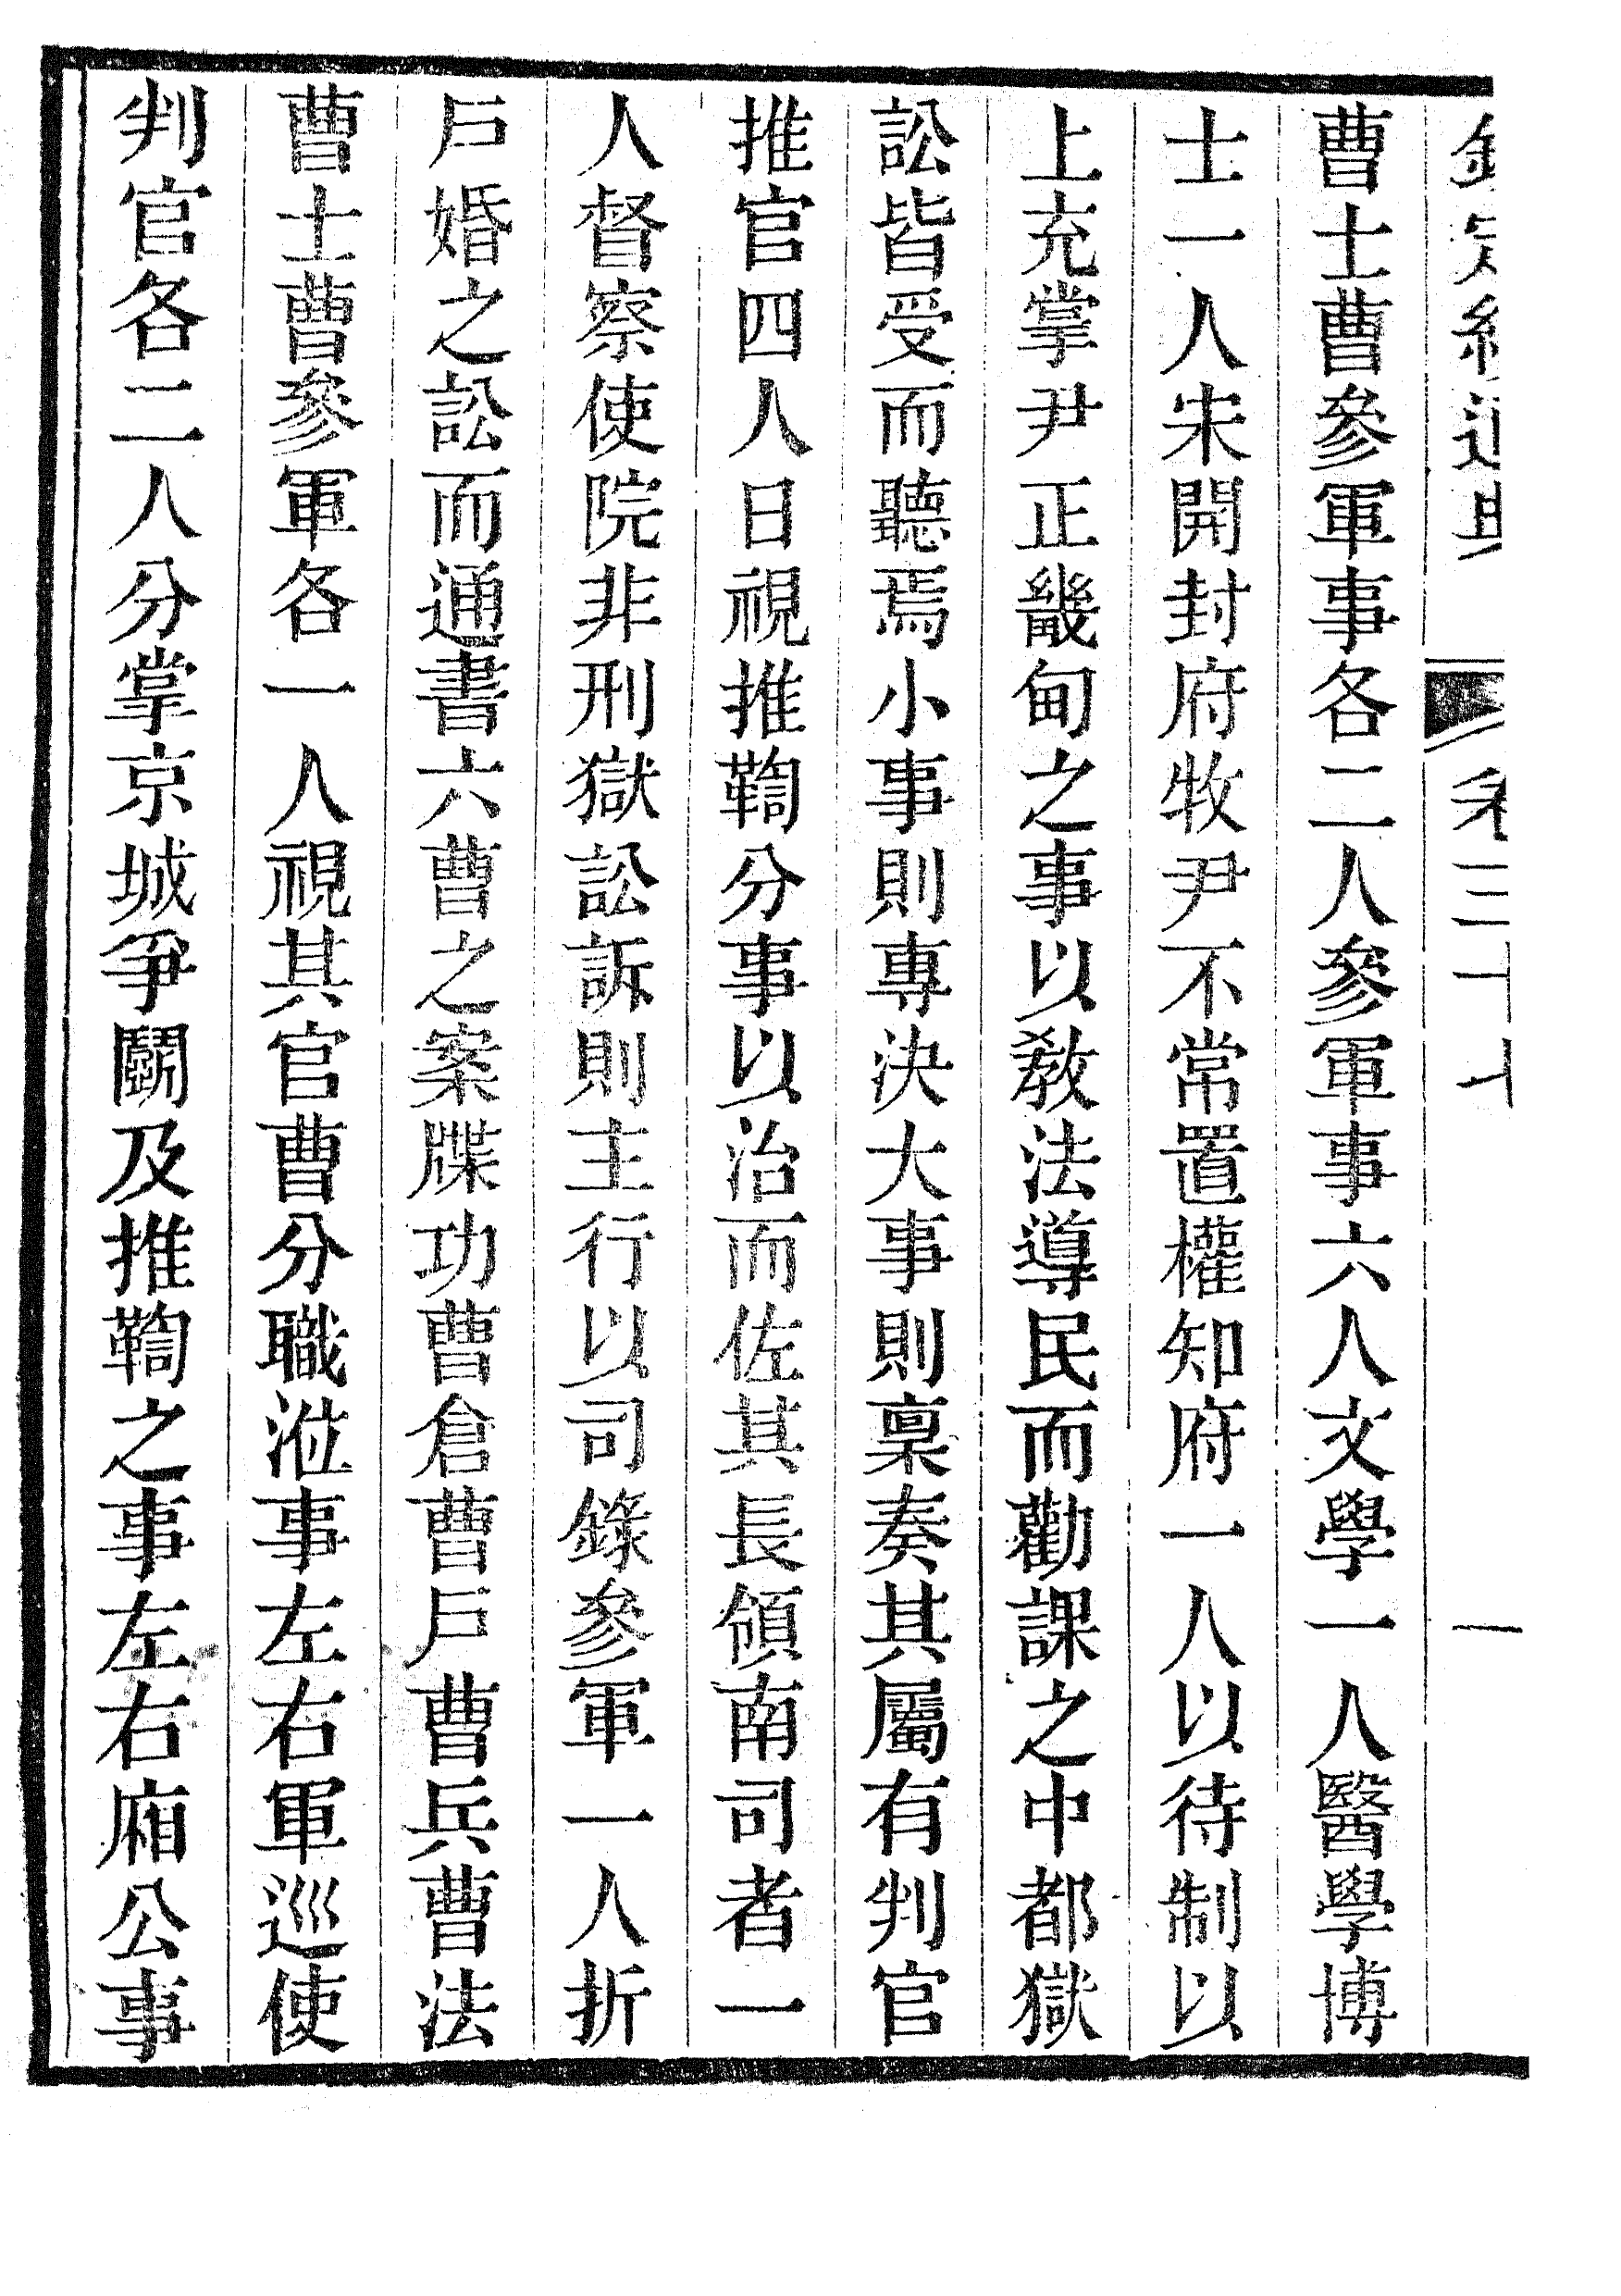 曹士曹參軍事各二人參軍事六人文學一人醫學博
士一人宋開封府牧尹不常置權知府一人以待制以
上充掌尹正畿甸之事以教法導民而勸課之中都獄
訟皆受而聽焉小事則專決大事則稟奏其屬有判官
推官四人日視推鞫分事以治而佐其長領南司者一
人督察使院非刑獄訟訴則主行以司錄參軍一人折
戶婚之訟而通書六曹之案牒功曹倉曹戶曹兵曹法
曹士曹參軍各一人視其官曹分職涖事左右軍巡使
判官各二人分掌京城爭鬬及推鞫之事左右廂公事